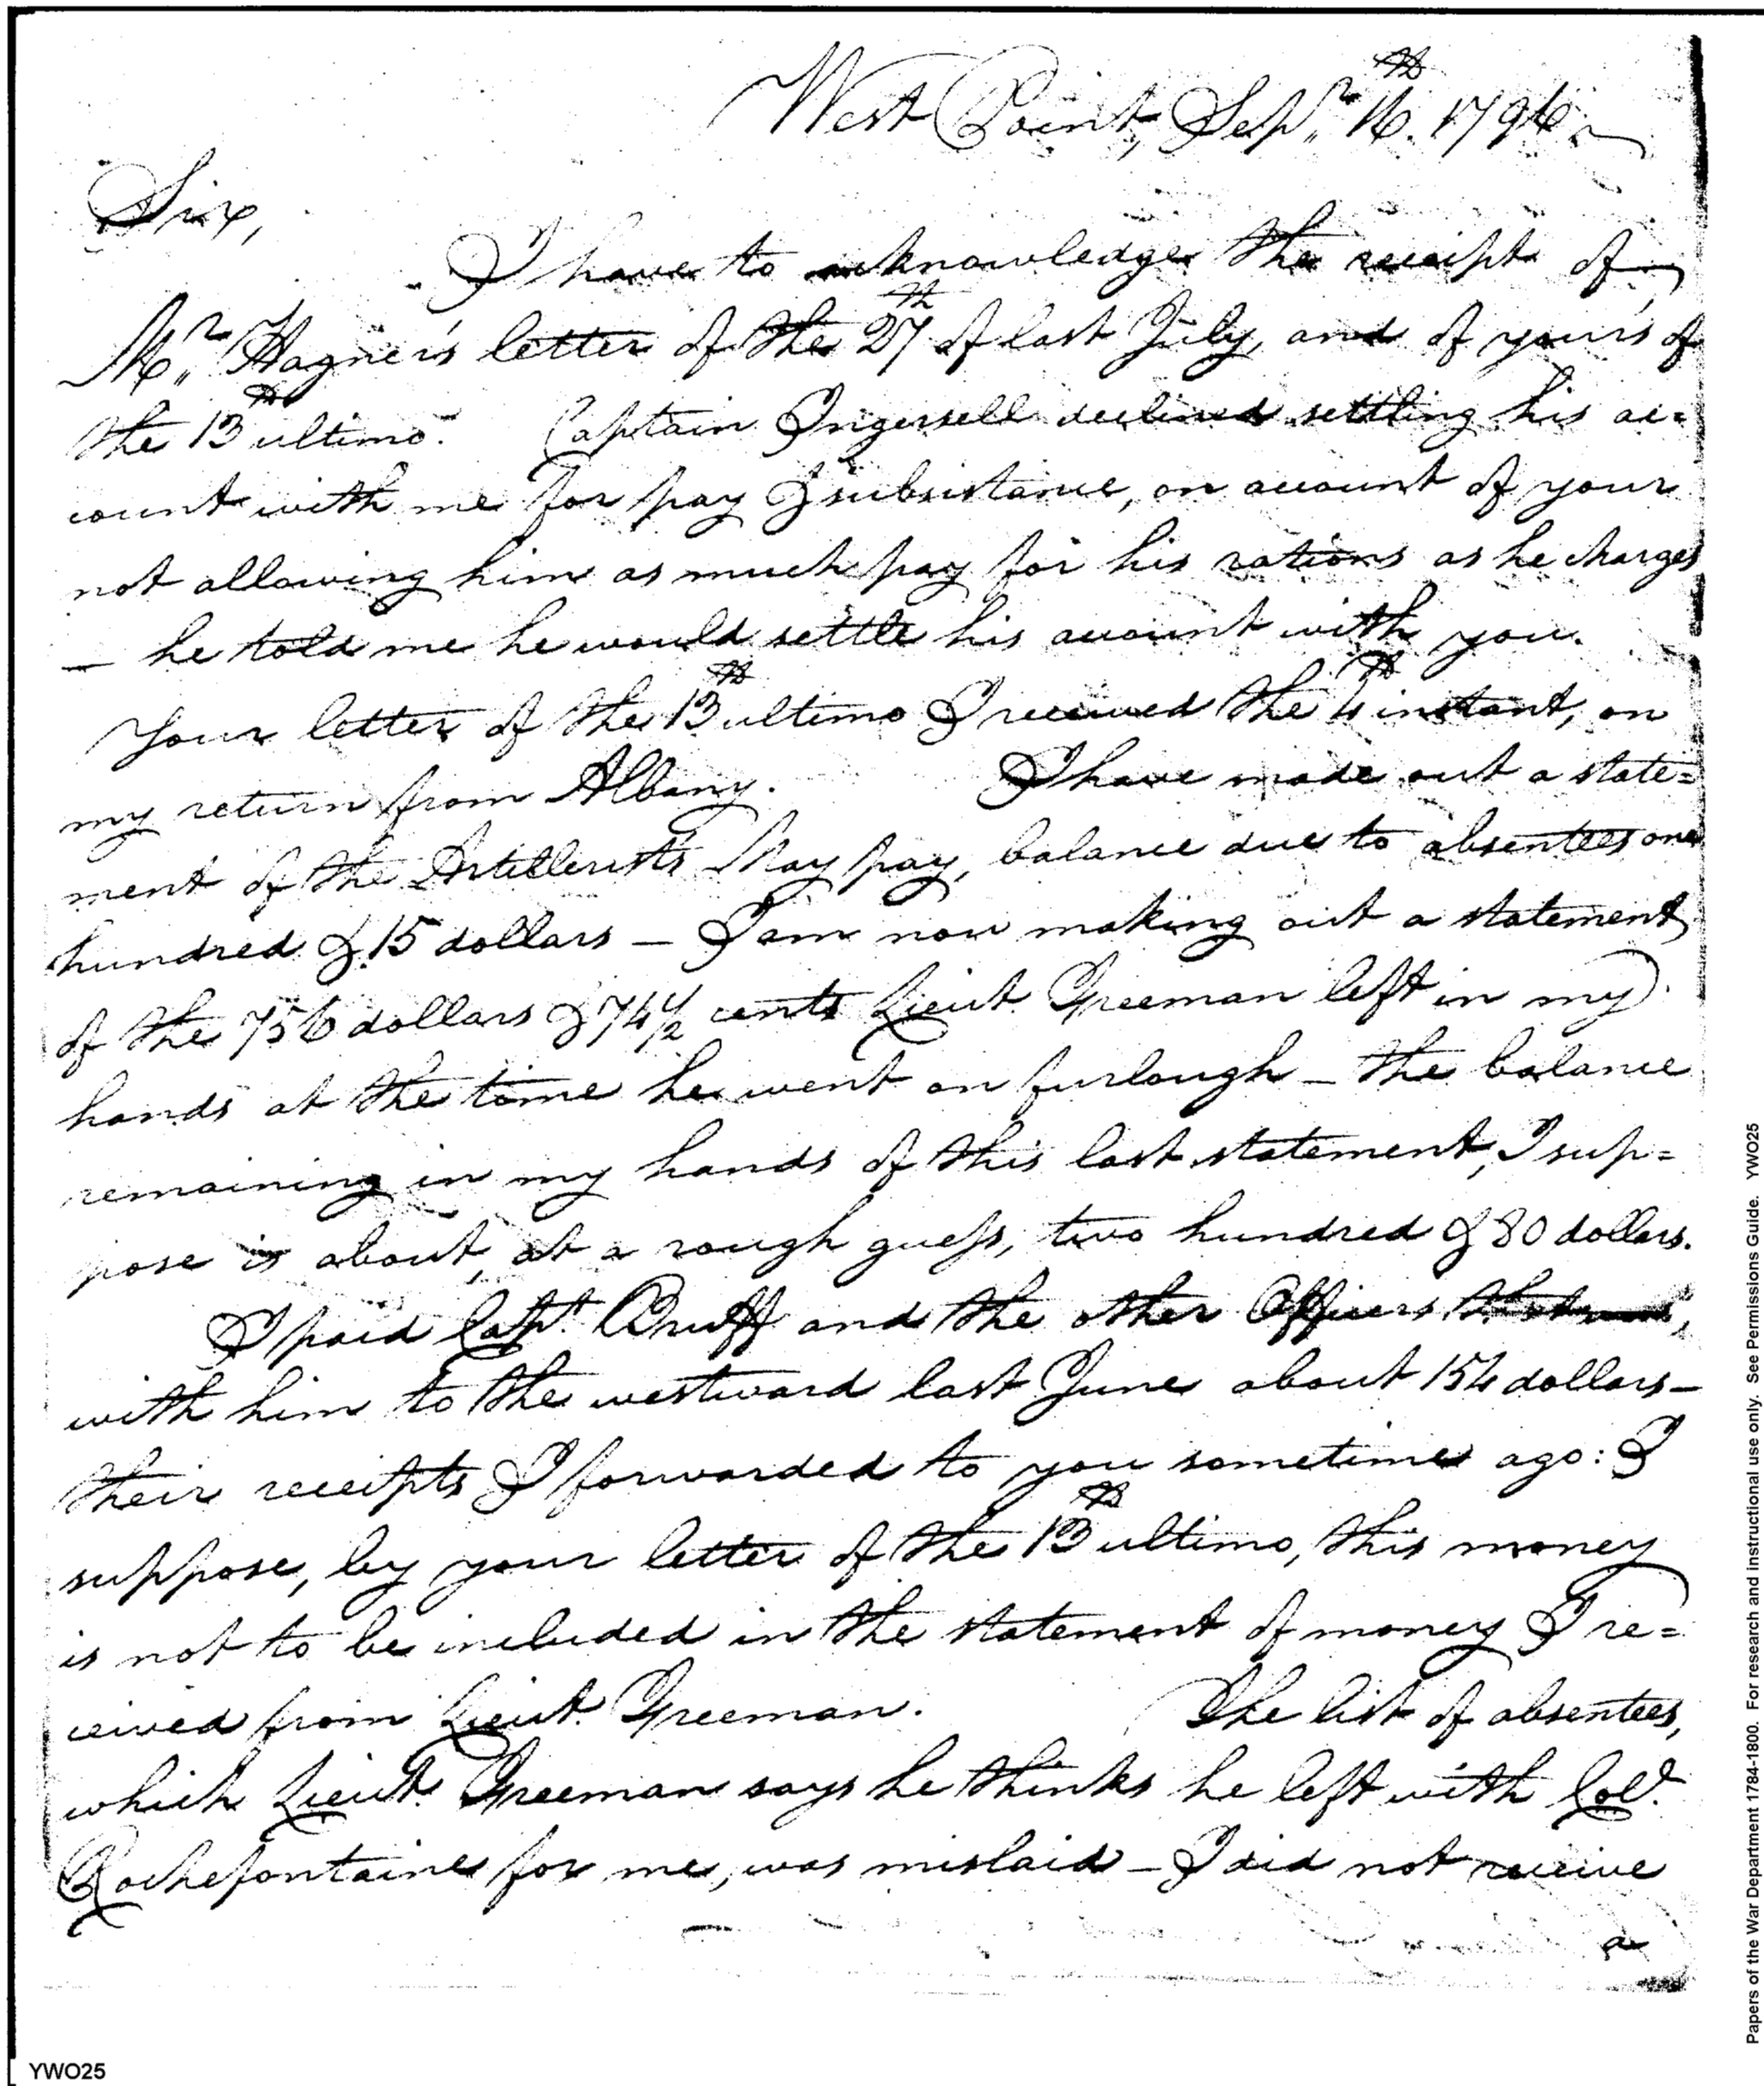 West Point, Sepr. 16th. 1796.
Sir,
I have to acknowledge the receipt of
Mr. Hagner's letter of the 27th of last July, and of your's of
the 13th ultimo. Captain Ingersoll declined settling his ac=
count with me for pay & subsistance, on account of your
not allowing him as much pay for his rations as he charges
— he told me he would settle his account with you.
Your letter of the 13th ultimo I received the 4th instant, on
my return from Albany. I have made out a state=
ment of the Artillerists May pay, balance due to absentees one
hundred & 15 dollars — I am now making out a statement
of the 756 dollars & 74 1/2 cents Lieut. Freeman left in my
hands at the time he went on furlough — the balance
remaining in my hands of this last statement, I sup=
pose is about, at a rough guess, two hundred & 80 dollars.
I paid Capt. Bruff and the other Officers
with him to the westward last June about 154 dollars —
their receipts I forwarded to you sometime ago: I
suppose, by your letter of the 13th ultimo, this money
is not to be included in the statement of money I re=
ceived from Lieut. Freeman. The list of absentees,
which Lieut. Freeman says he thinks he left with Col.
Rochefontaine for me, was mislaid — I did not receive
a
YWO25
Papers of the War Department 1784-1800. For research and instructional use only. See Permissions Guide. YWO25